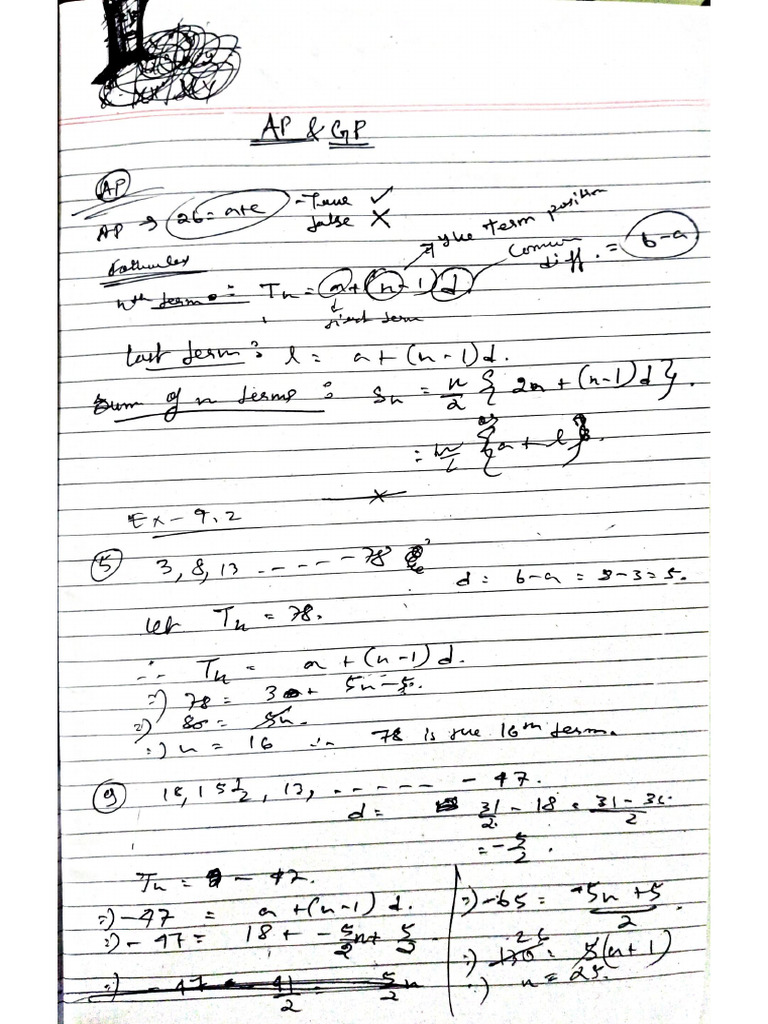 AP & GP
AP
AP → 2b = a+c - True ✓
false ✗
Formulas
nth term : Tn = a + (n-1) d
→ the term position
Common diff. = b-a
first term
Last term : l = a + (n-1)d.
Sum of n terms : Sn = n/2 { 2a + (n-1)d }.
or
= n/2 {a + l}.
Ex - 9.2
(5) 3, 8, 13 ------ 78
d = b-a = 8-3 = 5.
let Tn = 78.
∴ Tn = a + (n-1) d.
⇒) 78 = 3 + 5n - 5.
⇒) 80 = 5n.
⇒) n = 16 ∴ 78 is the 16th term.
(9) 18, 15 1/2, 13, ------ - 47.
d = 31/2 - 18 = 31 - 36/2
= -5/2.
Tn = - 47.
⇒) -47 = a + (n-1) d.
⇒) - 47 = 18 + - 5/2 n + 5/2
⇒) - 47 = 41/2 - 5/2 n
⇒) -65 = -5n + 5/2.
26
⇒) 130 = 5(n+1)
⇒) n = 25.